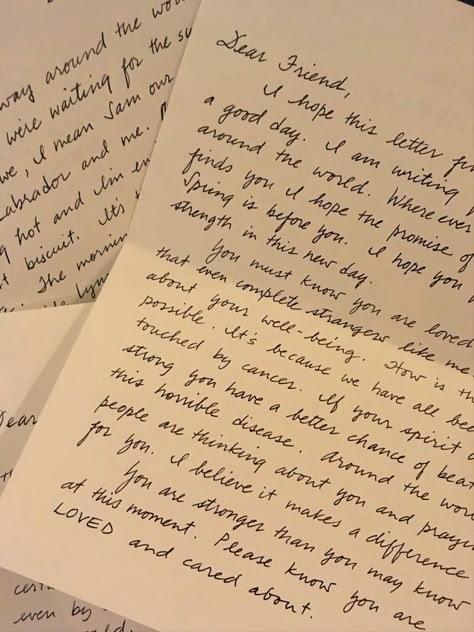 Dear Friend,
I hope this letter
a good day. I am writing
around the world. Where ever
finds you I hope the promise of
Spring is before you. I hope you
strength in this new day.
You must know you are loved
that even complete strangers like me
about your well-being. How is
possible. It's because we have all
touched by cancer. If your spirit
strong you have a better chance of
this horrible disease. Around the
people are thinking about you and
for you. I believe it makes a difference
You are stronger than you may know
at this moment. Please know you are
LOVED and cared about.
way around the
were waiting for the
we, I mean Sam our
Labrador and me.
hot and I'm
biscuit. It's
The
Dear
even by